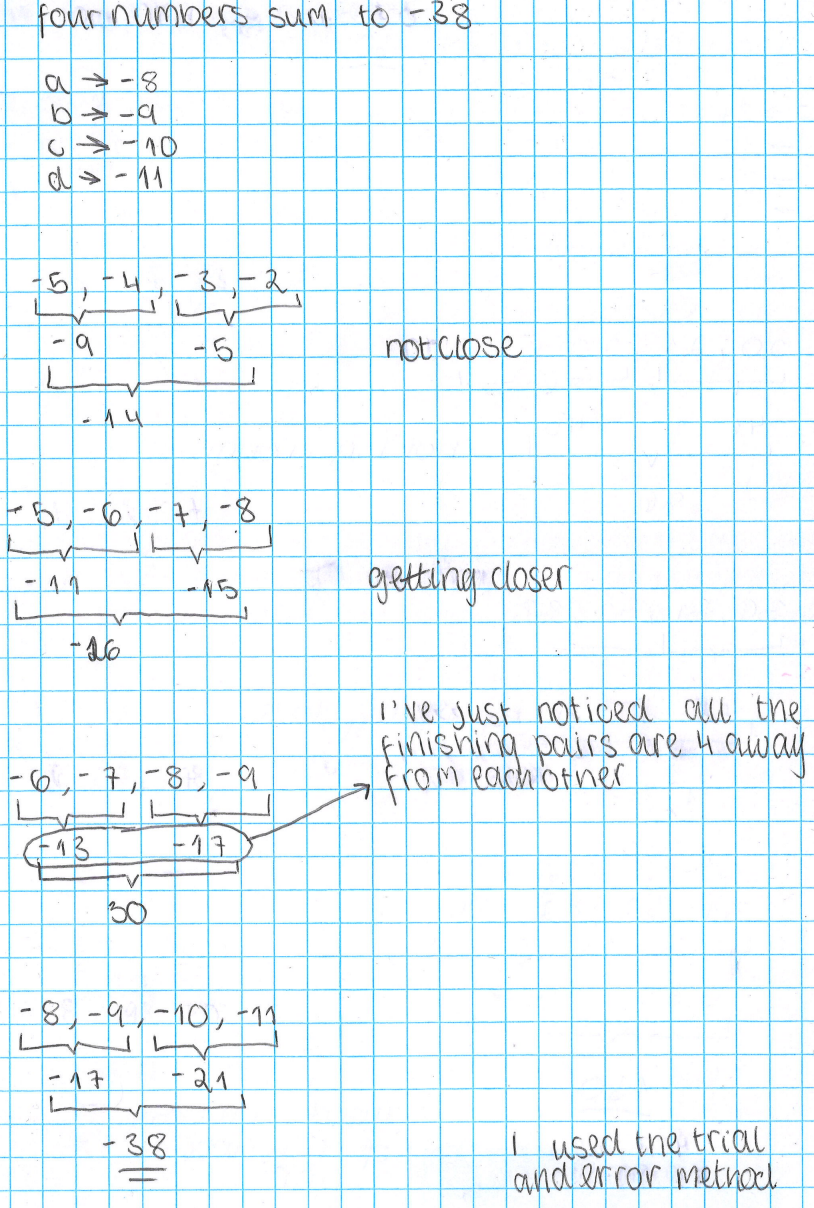 four numbers sum to -38
a → -8
b → -9
c → -10
d → -11
-5, -4, -3, -2
-9 -5 not close
-14
-5, -6, -7, -8
-11 -15 getting closer
-26
I've just noticed all the
finishing pairs are 4 away
from each other
-6, -7, -8, -9
-13 -17
30
-8, -9, -10, -11
-17 -21
-38
I used the trial
and error method